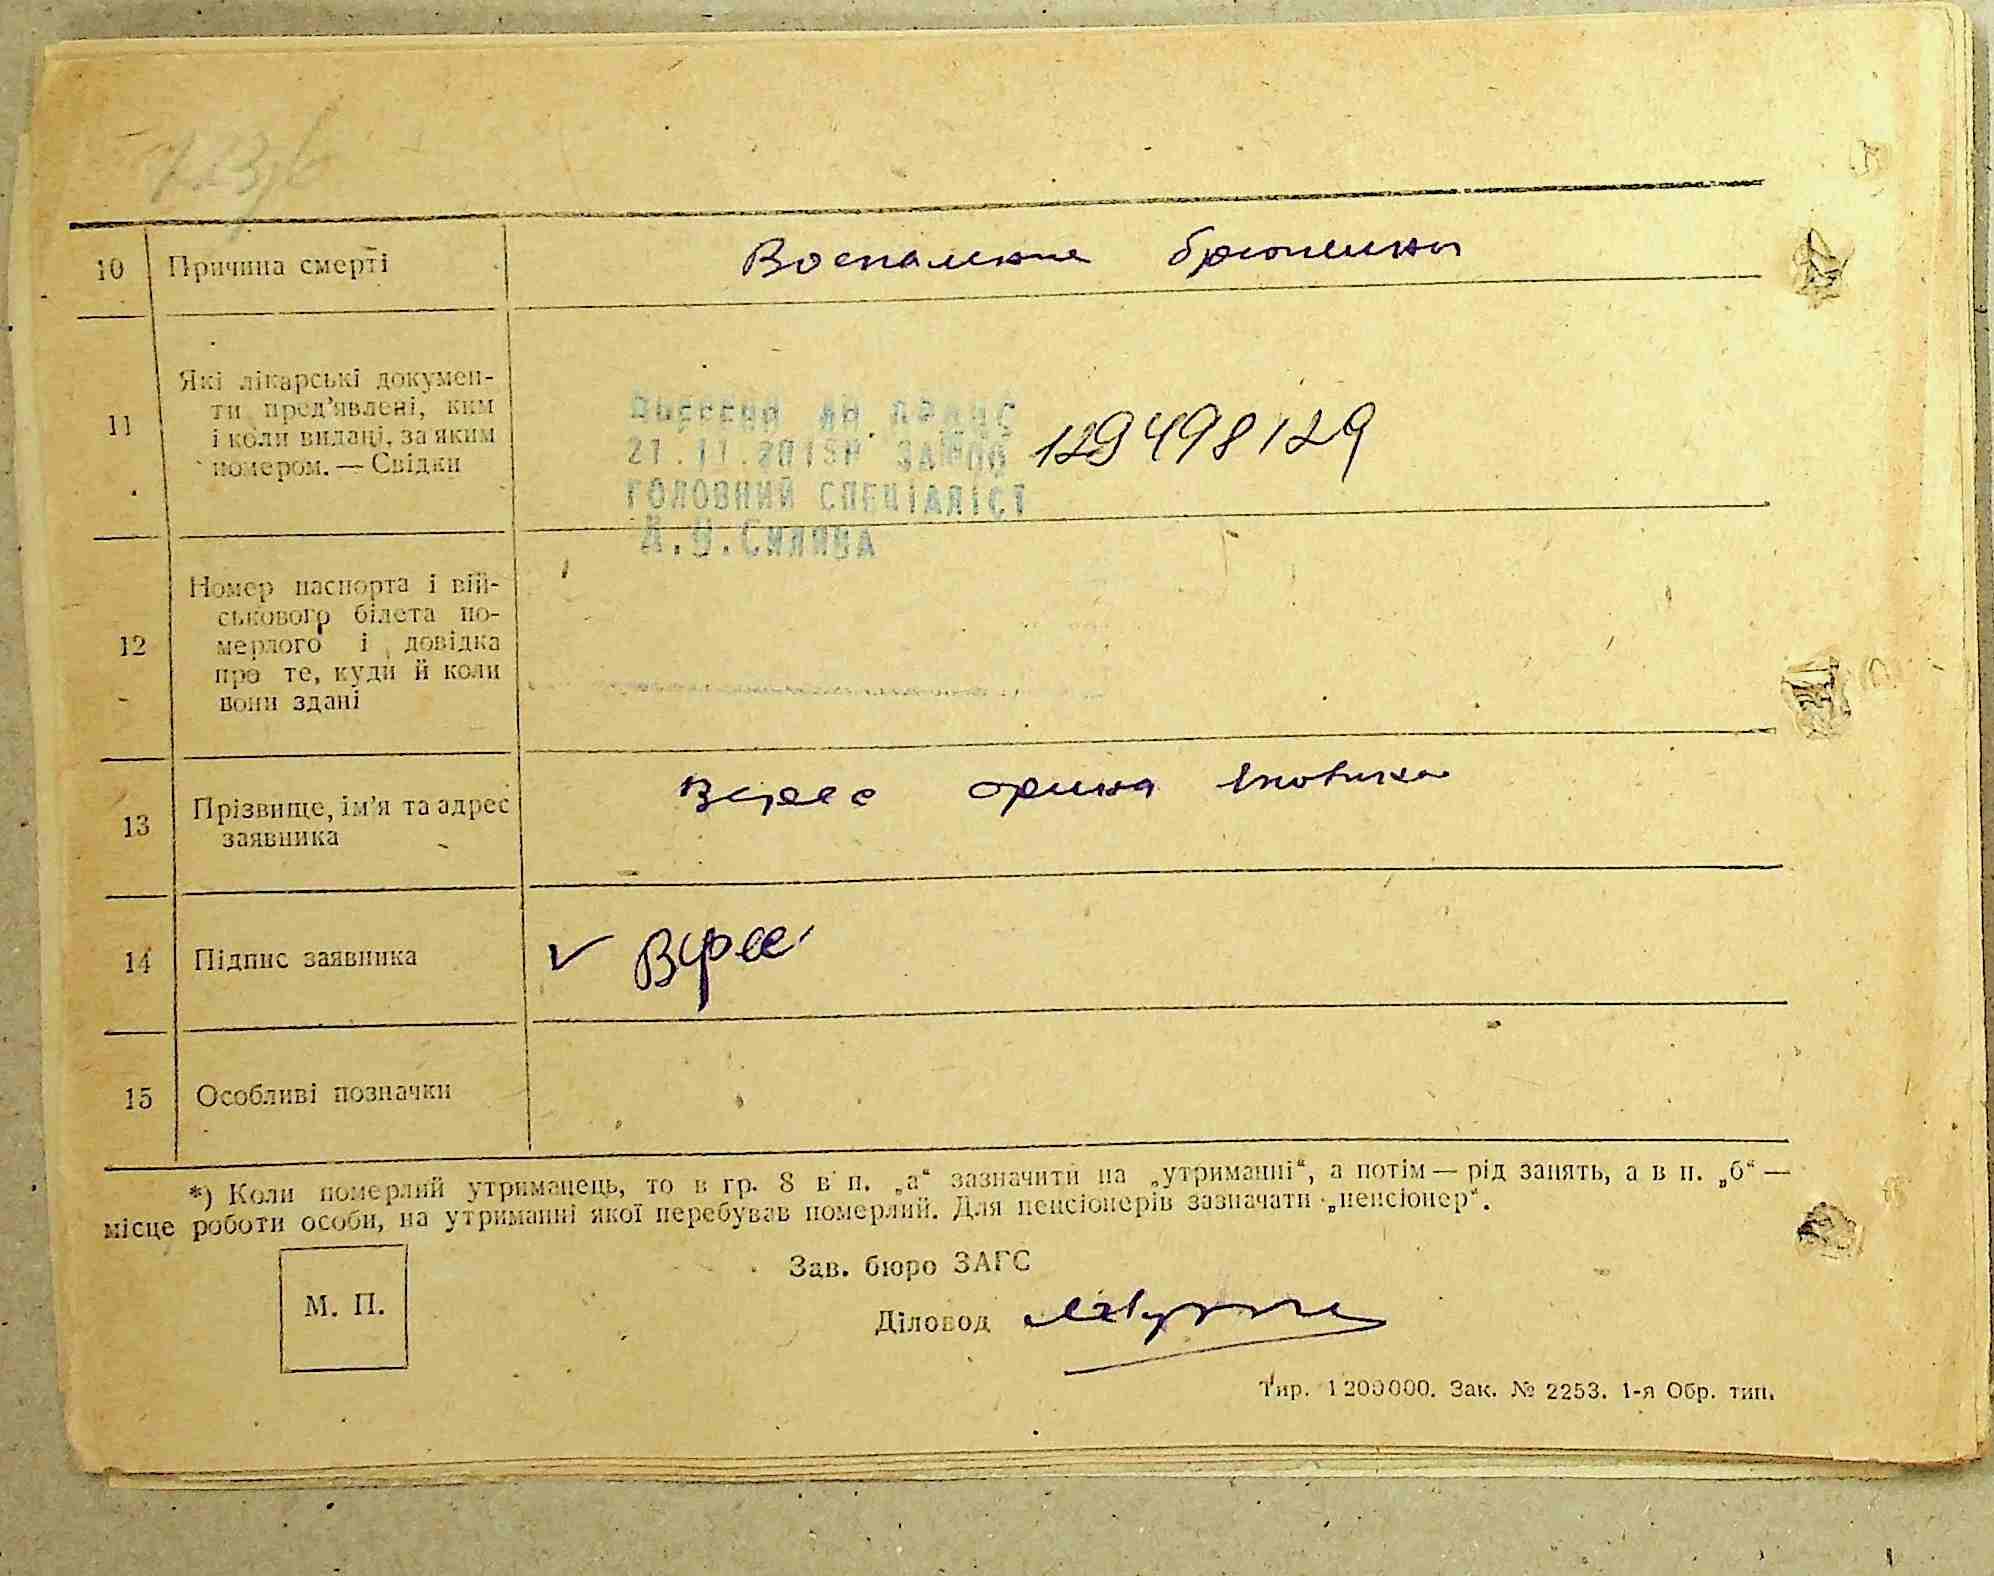 10 Причина смерті Воспаление брюшины
11 Які лікарські докумен-
ти пред’явлені, ким
і коли видані, за яким
номером. — Свідки
129498129
ГОЛОВНИЙ СПЕЦІАЛІСТ
12 Номер паспорта і вій-
ськового білета по-
мерлого і довідка
про те, куди й коли
вони здані
13 Прізвище, ім’я та адрес
заявника
14 Підпис заявника V
15 Особливі позначки
*) Коли померлий утриманець, то в гр. 8 в п. „а“ зазначити на „утриманні“, а потім — рід занять, а в п. „б“ —
місце роботи особи, на утриманні якої перебував померлий. Для пенсіонерів зазначати „пенсіонер“.
М. П.
Зав. бюро ЗАГС
Діловод
Тир. 1200000. Зак. № 2253. 1-я Обр. тип.